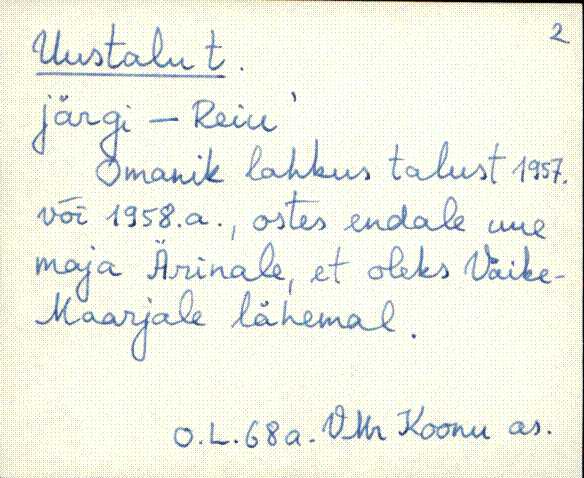 2
Uustalu t.
järgi — Reiu'
Omanik lahkus talust 1957.
või 1958.a., ostes endale uue
maja Ärinale, et oleks Väike-
Maarjale lähemal.
O.L. 68a. VMr Koonu as.